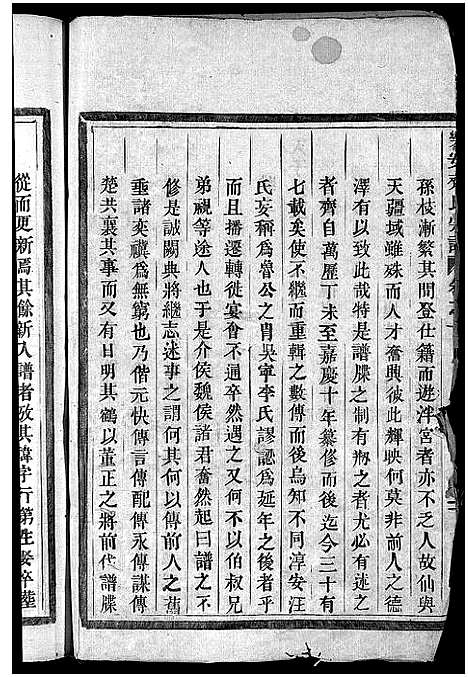 孫枝漸繁其間登仕籍而遊泮宮者亦不乏人故仙與
天疆域雖殊而人才奮興彼此輝映何莫非前人之德
澤有以致之哉特是譜牒之制有刱之者尤必有述之
者齊自萬曆丁未至嘉慶十年纂修而後迄今三十有
七載矣使不繼而重輯之數傳而後烏知不同淳安汪
氏妄稱為魯公之胄吳寧李氏謬認為延年之後者乎
而且播遷轉徙宴會不通卒然遇之又何不以伯叔兄
弟視等途人也于是介侯魏侯諸君奮然起曰譜之不
修是誠闕典將繼志述事之謂何其何以傳前人之舊
垂諸奕禩為無窮也乃偕元快傳言傳配傳永傳謀傳
楚共襄其事而又有日明其鶴以董正之將前代譜牒
從而更新焉其餘新入譜者攷其諱字行第生娶卒塟